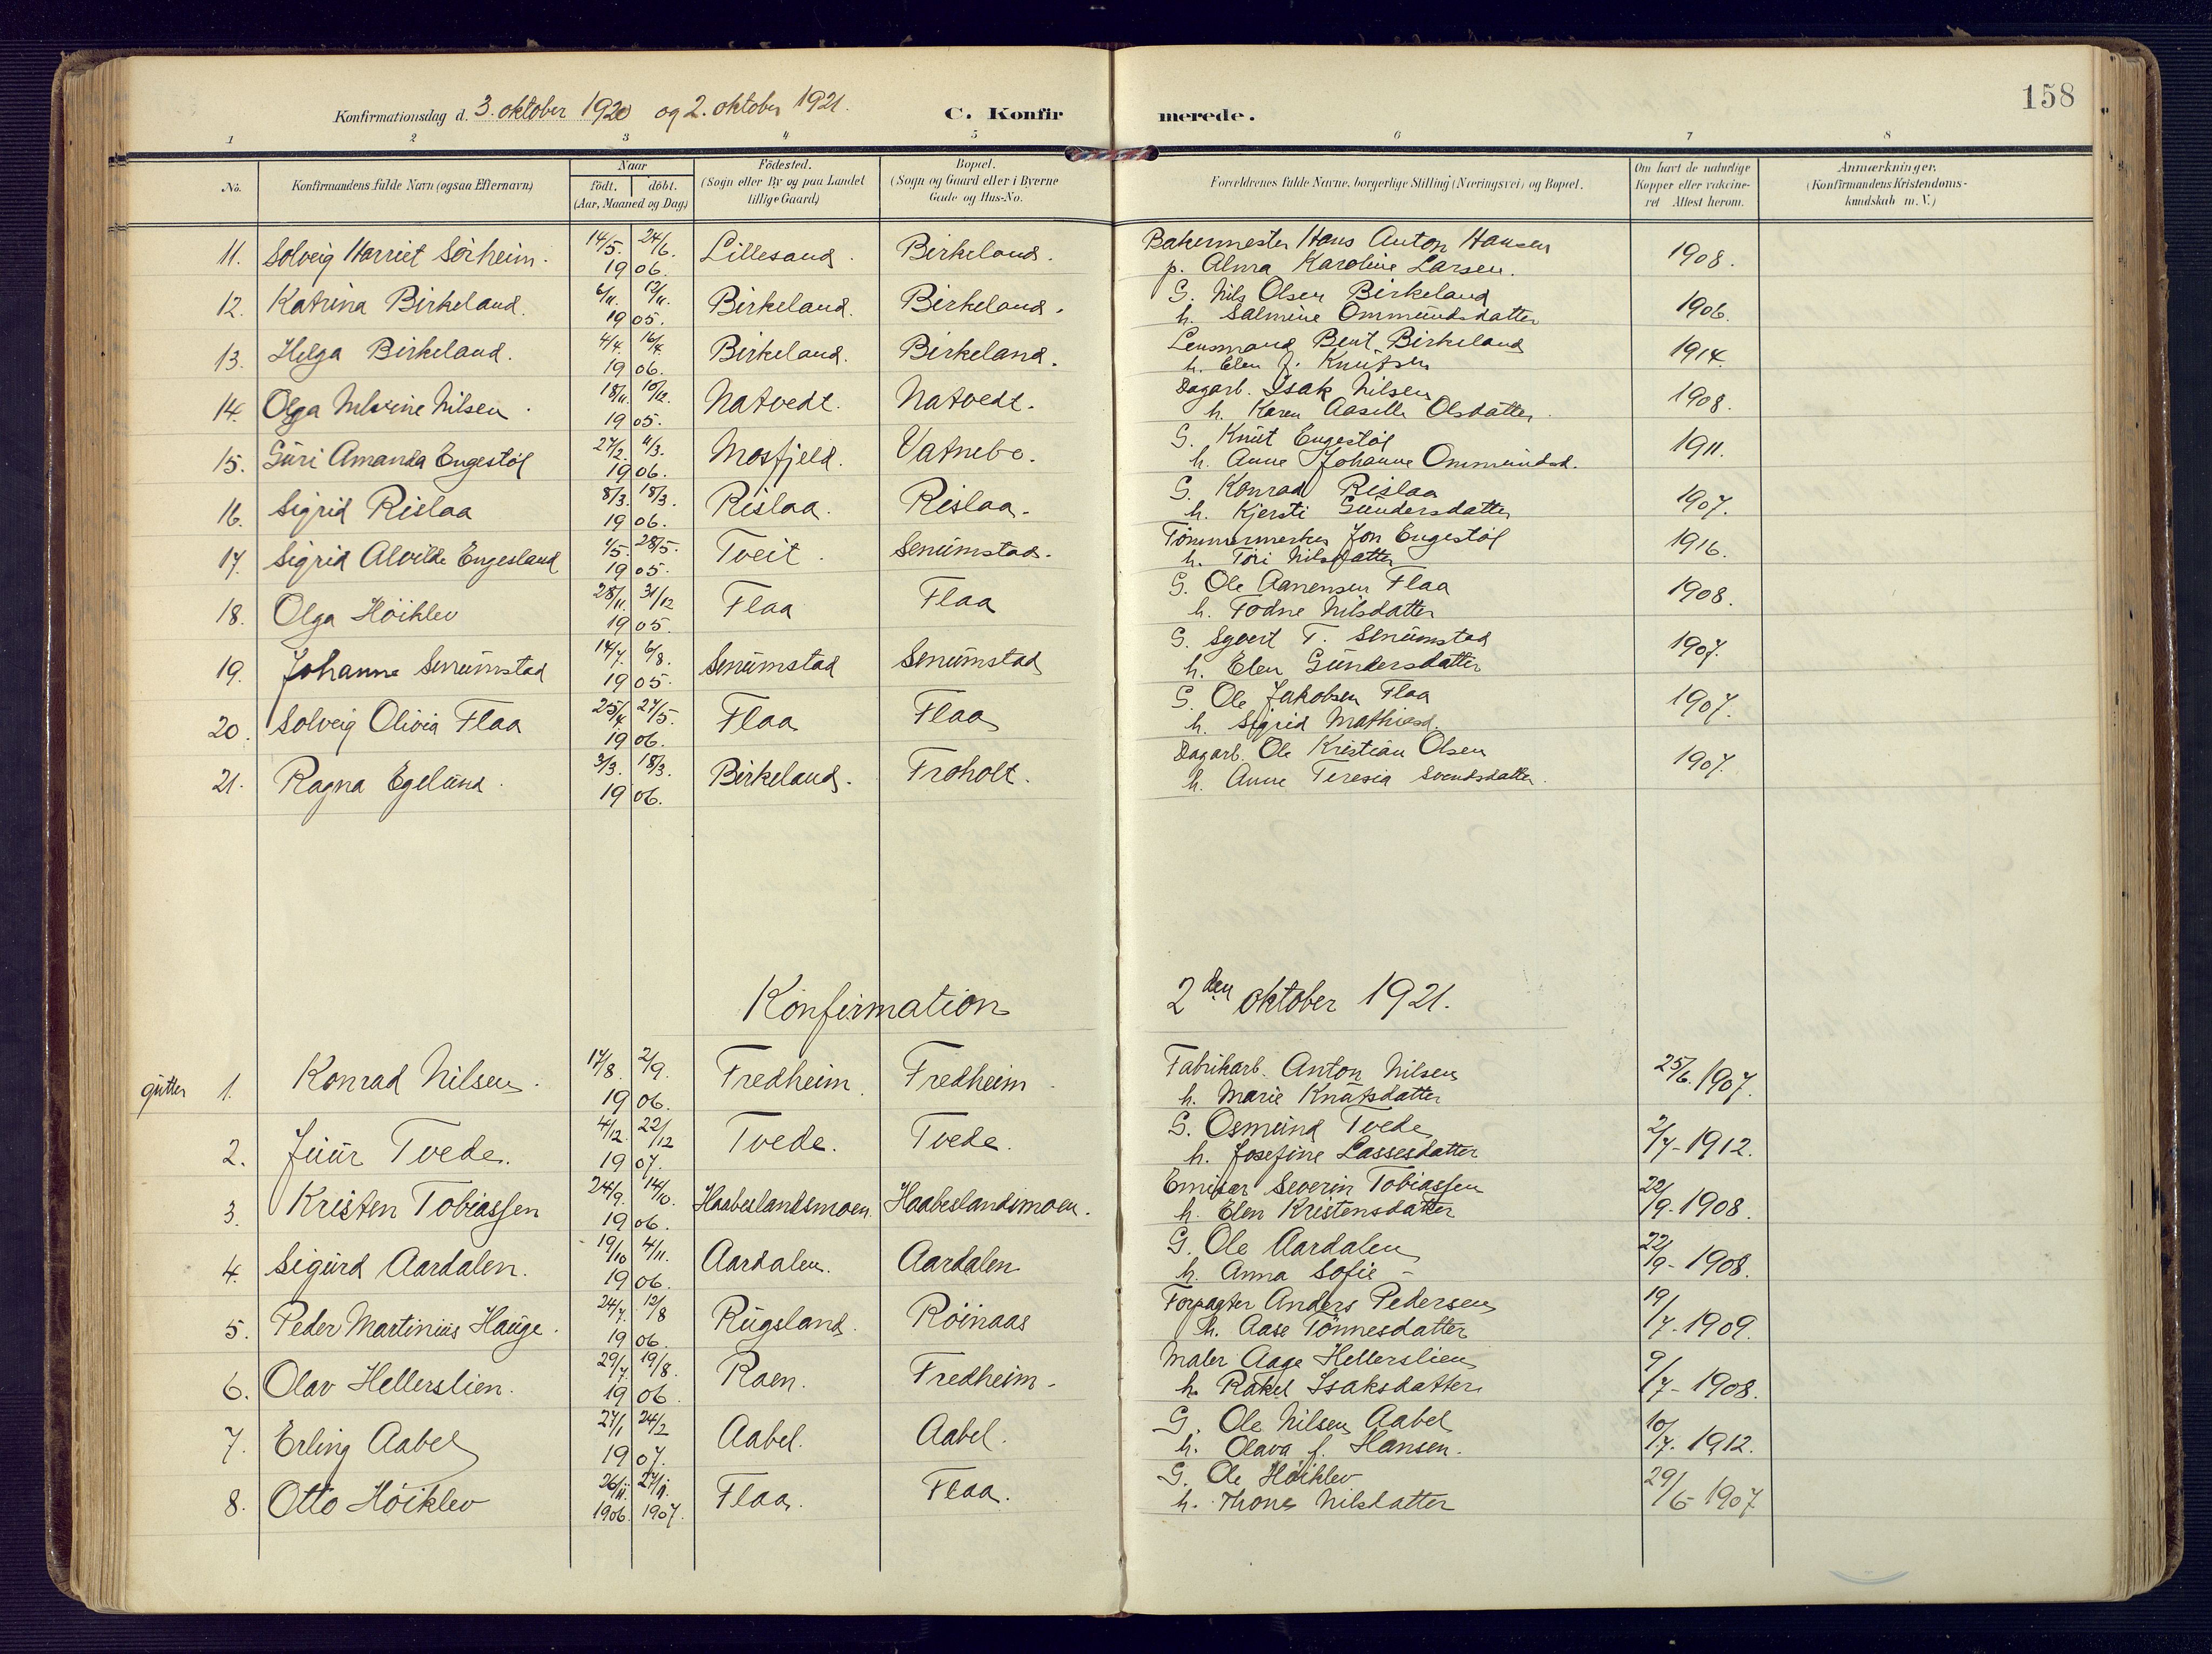 158
Konfirmationsdag d. 3. oktober 1920 og 2. oktober 1921.
C. Konfirmerede.
1 2 3 4 5 6 7 8
No. Konfirmandens fulde Navn (ogsaa Efternavn) Naar födt. döbt. (Aar, Maaned og Dag) Födested. (Sogn eller By og paa Landet tillige Gaard) Bopæl. (Sogn og Gaard eller i Byerne Gade og Hus-No. Forældrenes fulde Navne, borgerlige Stilling (Næringsvei) og Bopæl. Om havt de naturlige Kopper eller vakcineret Attest herom. Anmærkninger. (Konfirmandens Kristendomskundskab m. V.)
11. Solveig Harriet Sörheim. 14/5. 24/6. 1906. Lillesand. Birkeland. Bakermester Hans Anton Hansen 1908.
p. Alma Karoline Larsen.
12. Katrina Birkeland. 6/11. 12/11. 1905. Birkeland. Birkeland. G. Nils Olsen Birkeland 1906.
h. Salmine Ommundsdatter
13. Helga Birkeland. 4/4. 16/4. 1906. Birkeland. Birkeland. Lensmand Bent Birkeland 1914.
h. Elen f. Knutsen
14. Olga Nilsen. 18/11. 10/12. 1905. Natvedt. Natvedt. Dagarb. Isak Nilsen 1908.
h. Karen Aasille Olsdatter.
15. Guri Amanda Engestöl 27/2. 11/3. 1906. Mosfjeld. Vatnebo. G. Knut Engestöl 1911.
h. Anne Johanne Ommundsd.
16. Sigrid Rislaa 8/3. 18/3. 1906. Rislaa. Rislaa. G. Konrad Rislaa 1907.
h. Kjersti Gundersdatter
17. Sigrid Alvilde Engesland 1/5. 28/5. 1905. Tveit. Senumstad. Tömmermerker Jon Engestöl 1916.
h. Töri Nilsdatter
18. Olga Höiklev 28/11. 31/12 1905. Flaa Flaa G. Ole Aanensen Flaa 1908.
h. Todne Nilsdatter
19. Johanne Senumstad 14/7. 6/8. 1905. Senumstad Senumstad G. Syvert T. Senumstad 1907.
h. Elen Gundersdatter
20. Solveig Olivia Flaa 25/4 27/5. 1906. Flaa Flaa G. Ole Jakobsen Flaa 1907.
h. Sigrid Mathiesd.
21. Ragna Egelund. 3/3. 18/3. 1906. Birkeland. Froholt. Dagarb. Ole Kristian Olsen 1907.
h. Anne Teresia Svendsdatter.
Konfirmation 2den oktober 1921.
gutter 1. Konrad Nilsen. 17/8. 2/9. 1906. Fredheim. Fredheim. Fabrikarb. Anton Nilsen 25/6. 1907.
h. Marie Knutsdatter
2. Juur Tvede. 4/12. 22/12 1907. Tvede. Tvede. G. Osmund Tvede 2/7 - 1912.
h. Josefine Lassesdatter
3. Kristen Tobiassen 24/9. 14/10. 1906. Haabeslandsmoen. Haabeslandsmoen. Emisær Severin Tobiassen 22/9. 1908.
h. Elen Kristensdatter
4. Sigurd Aardalen. 19/10 4/11. 1906. Aardalen. Aardalen G. Ole Aardalen 22/9 - 1908.
h. Anna Sofie -
5. Peder Martinius Hauge. 24/7. 12/8 1906. Rugsland. Röinaas Forpagter Anders Pedersen 19/7. 1909.
h. Aase Tönnesdatter
6. Olav Hellerslien. 29/7. 19/8. 1906. Raen. Fredheim. Maler Aage Hellerslien 9/7 - 1908.
h. Rakel Isaksdatter
7. Erling Aabel 27/1 24/2 1907. Aabel. Aabel. G. Ole Nilsen Aabel 10/7. 1912.
h. Olava f. Hansen.
8. Otto Höiklev 26/11. 27/1. 1906. 1907. Flaa. Flaa. G. Ole Höiklev 29/6 - 1907
h. Thone Nilsdatter